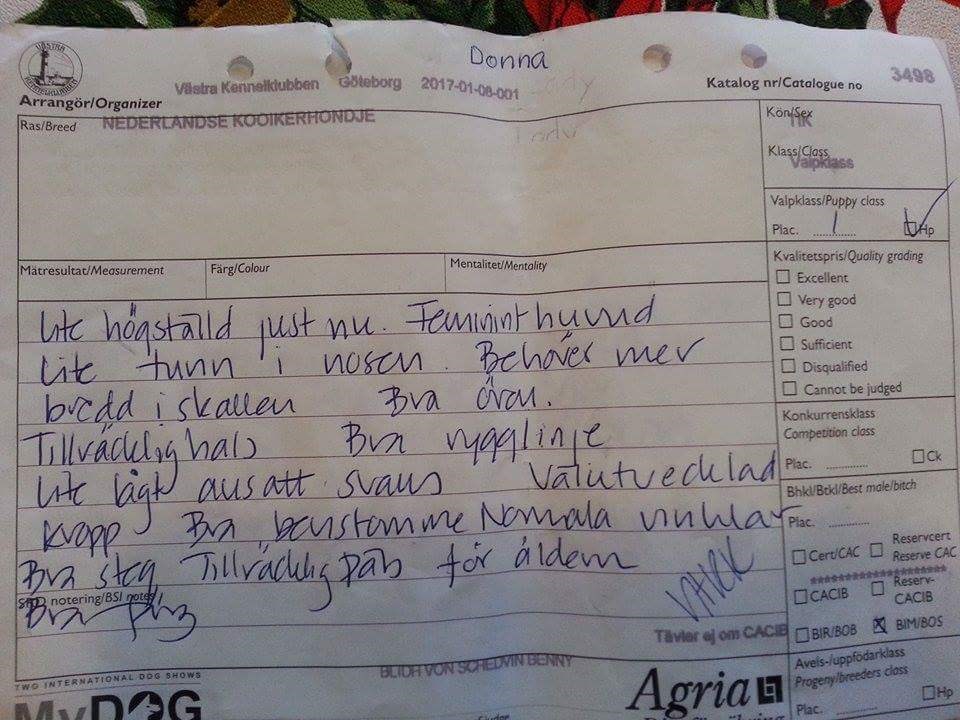 VÄSTRA KENNELKLUBBEN
Donna
Västra Kennelklubben Göteborg 2017-01-08-001
Katalog nr/Catalogue no 3498
Arrangör/Organizer
Ras/Breed NEDERLANDSE KOOIKERHONDJE
Kön/Sex
Klass/Class
Valpklass
Valpklass/Puppy class
Plac. 1 Hp
Mätresultat/Measurement Färg/Colour Mentalitet/Mentality
Kvalitetspris/Quality grading
Excellent
Very good
Good
Sufficient
Disqualified
Cannot be judged
Konkurrensklass
Competition class
Plac. Ck
Bhkl/Btkl/Best male/bitch
Plac.
Cert/CAC Reservcert
Reserve CAC
CACIB Reserv-
CACIB
BIR/BOB BIM/BOS
Avels-/uppfödarklass
Progeny/breeders class
Hp
Plac.
Lite högställd just nu. Feminint huvud
Lite tunn i nosen. Behöver mer
bredd i skallen Bra öron.
Tillräcklig hals Bra rygglinje
Lite lågt ansatt svans Välutvecklad
kropp Bra benstomme Normala vinklar
Bra steg Tillräcklig päls för åldern
notering/BSI notes
Bra päls
VÄKK
Tävlar ej om CACIB
BLIDH VON SCHEDVIN BENNY
TWO INTERNATIONAL DOG SHOWS
MyDOG
Agria